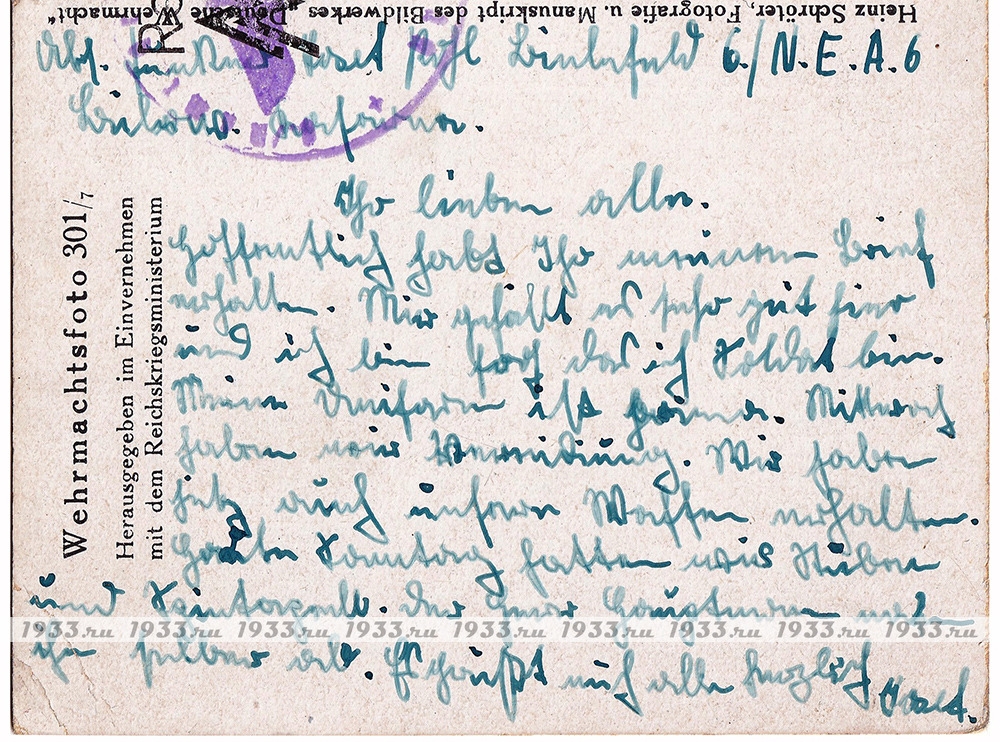 Heinz Schröter, Fotografie u. Manuskript des Bildwerkes „Deutsche Wehrmacht"
Abs. Funker Josef Bielefeld 6./N.E.A.6
Ihr lieben alle.
Hoffentlich habt Ihr meinen Brief
erhalten. Mir gefällt es sehr gut hier
und ich bin das ich Soldat bin.
Meine Uniform ist prima. Mittwoch
haben wir Vereidigung. Wir haben
jetz auch unsere Waffen erhalten.
Heute Sonntag hatten wir Stuben
und Der Herr Hauptmann
selber ab. Es grüßt euch alle herzlich
Josef.
Wehrmachtsfoto 301/7
Herausgegeben im Einvernehmen
mit dem Reichskriegsministerium
1933.ru 1933.ru 1933.ru 1933.ru 1933.ru 1933.ru 1933.ru 1933.ru 1933.ru